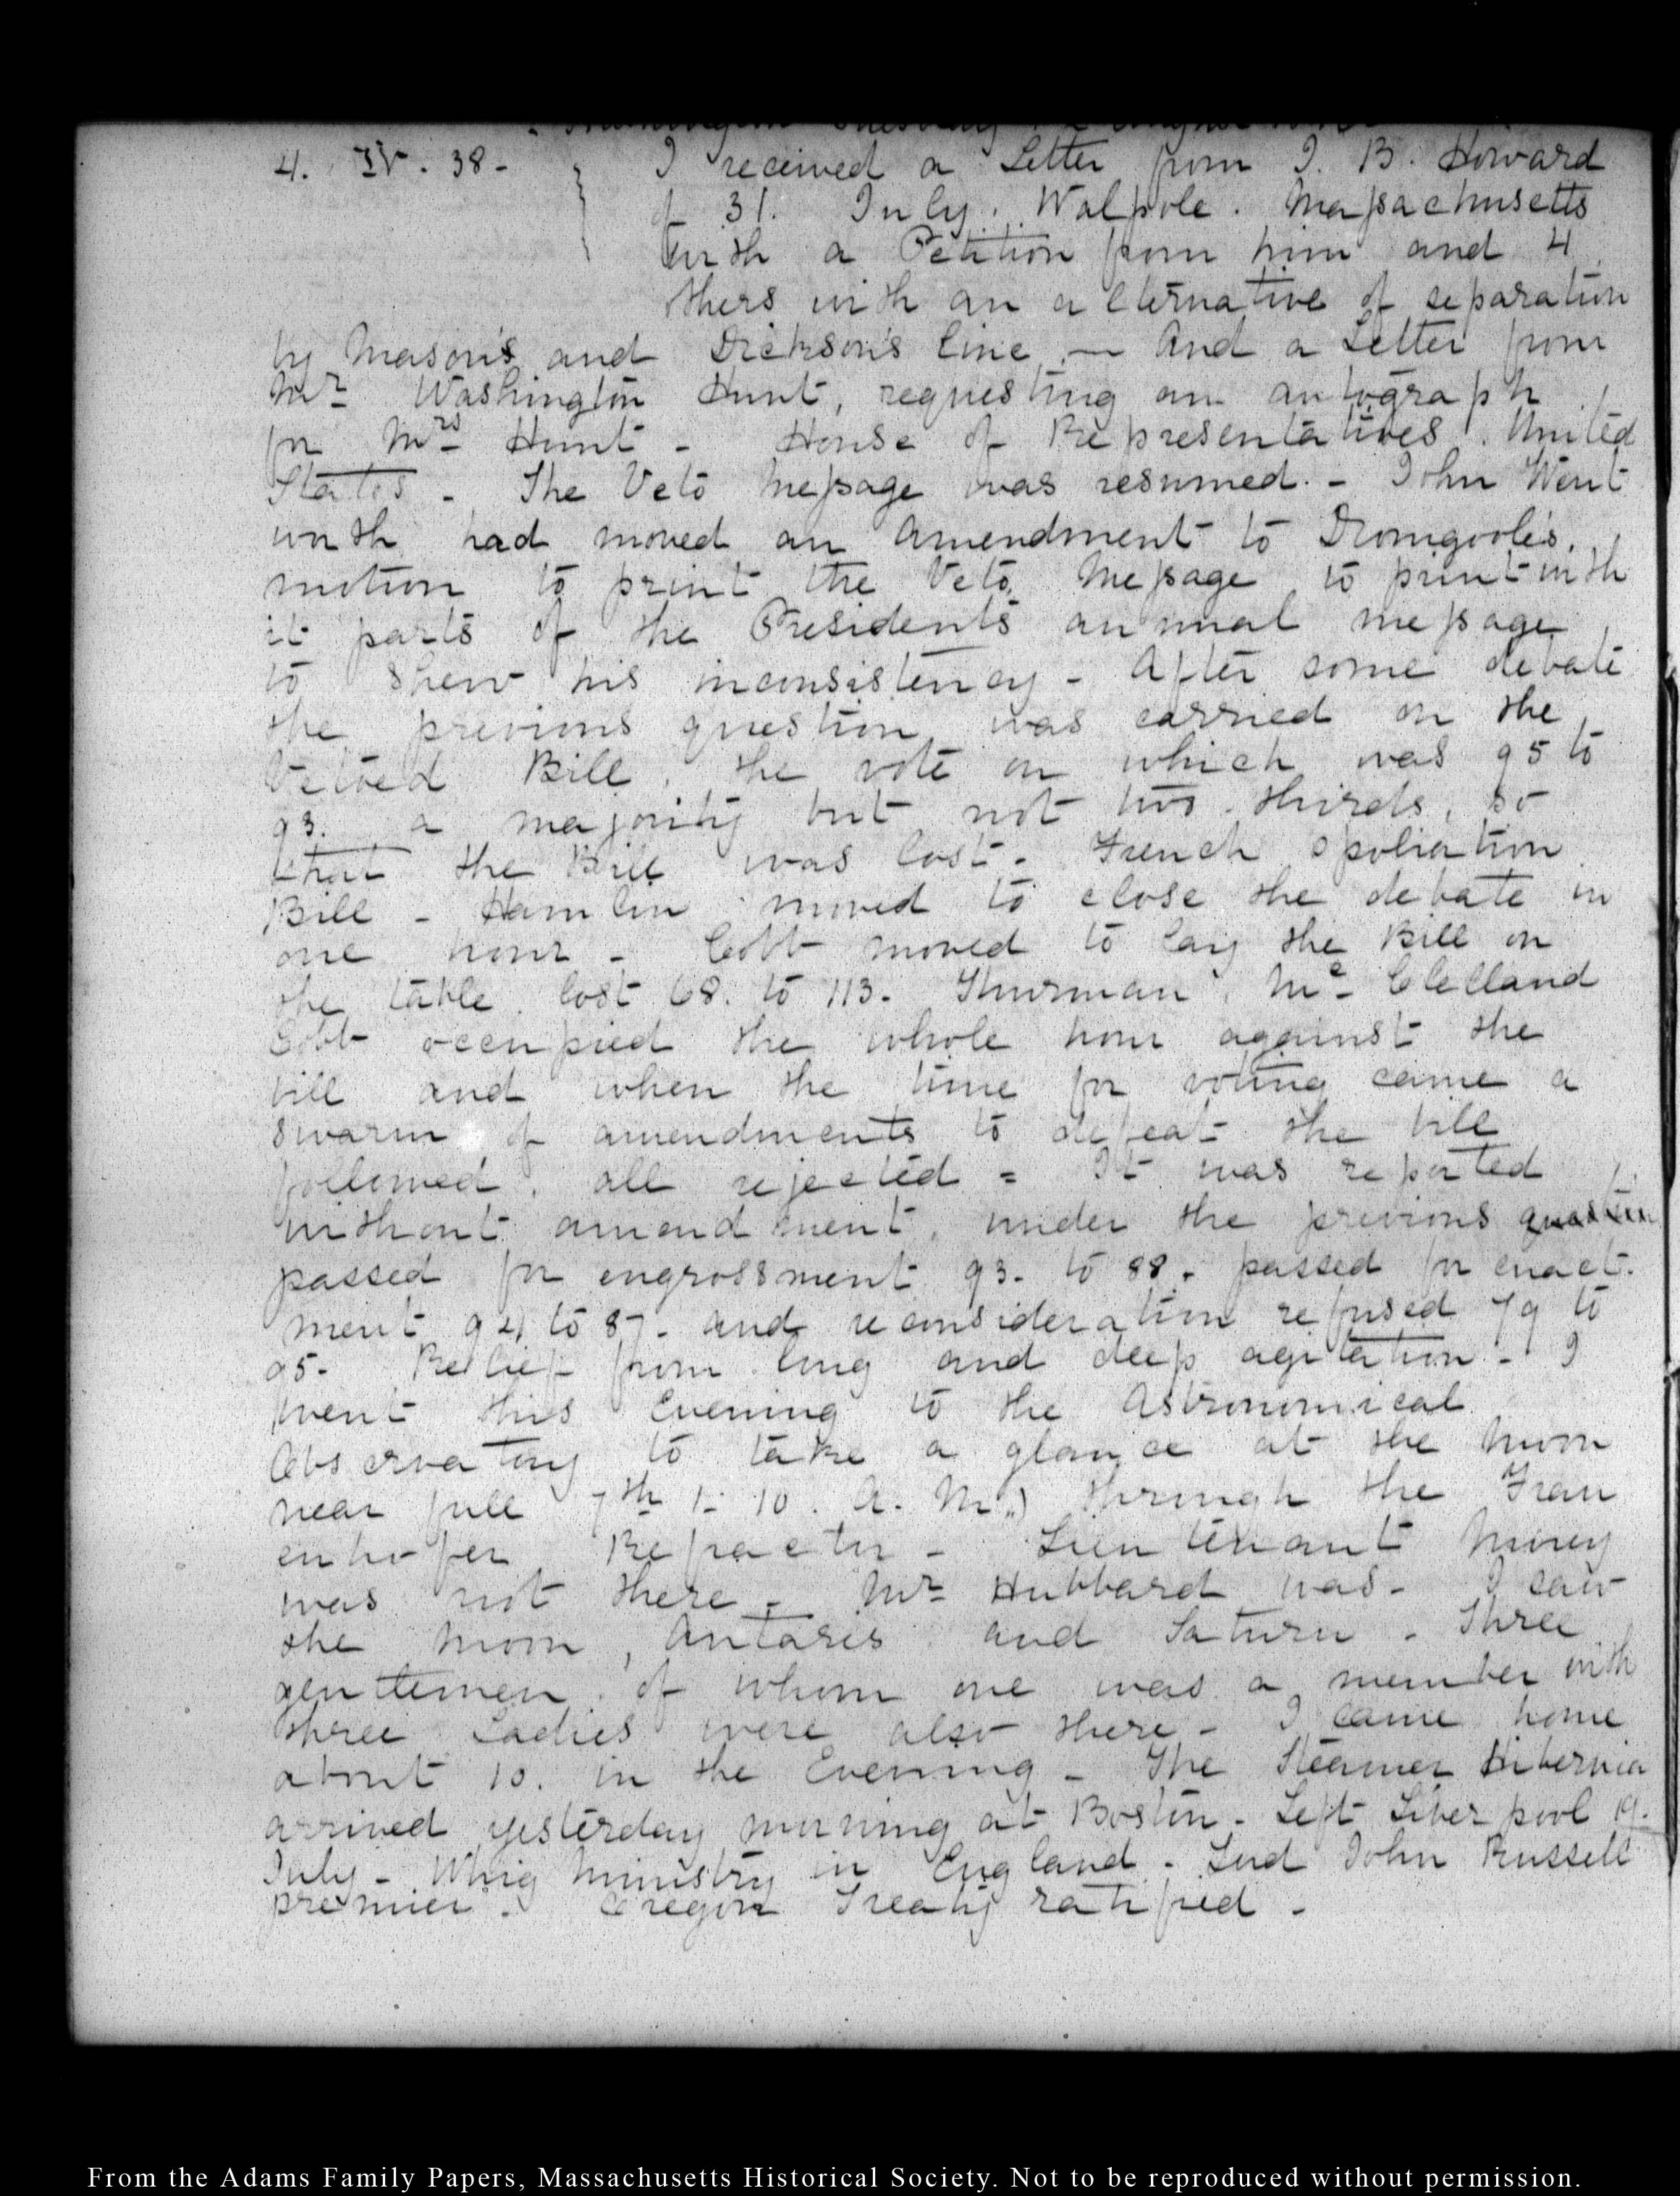 4. IV. 38- I received a Letter from J. B. Howard
of 31. July. Walpole. Massachusetts
with a Petition from him and 4
others with an alternative of separation
by Mason's and Dickson's line — And a Letter from
Mr Washington Hunt, requesting an autograph
for Mrs Hunt - House of Representatives. United
States - The Veto Message was resumed. - John Went
worth had moved an amendment to Dromgoole's
motion to print the Veto Message to print with
it parts of the President's annual message
to shew his inconsistency - After some debate
the previous question was carried on the
Vetoed Bill, the vote on which was 95 to
93. a majority but not two thirds, so
that the Bill was lost - French spoliation
Bill - Hamlin moved to close the debate in
one hour - Cobb moved to lay the Bill on
the table lost 68. to 113. Thurman, Mc Clelland
Cobb occupied the whole hour against the
bill and when the time for voting came a
swarm of amendments to defeat the bill
followed, all rejected = It was reported
without amendment, under the previous question
passed for engrossment 93. to 88. passed for enact-
ment 94 to 87. and reconsideration refused 79 to
95- Relief from long and deep agitation - I
went this Evening to the Astronomical
Observatory to take a glance at the Moon
near full 7th 1- 10. A. M.) through the Frau
enhofer Refractor - Lieutenant Maury
was not there - Mr Hubbard was - I saw
the Moon, Antares and Saturn - Three
gentlemen, of whom one was a member with
three Ladies were also there - I came home
about 10. in the Evening - The Steamer Hibernia
arrived yesterday morning at Boston - Left Liverpool 19.
July - Whig Ministry in England - Lord John Russell
premier - Oregon Treaty ratified -
From the Adams Family Papers, Massachusetts Historical Society. Not to be reproduced without permission.